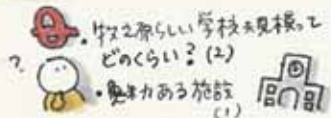 ・牧之原らしい学校規模って
どのくらい？(2)
?
・魅力ある施設
(1)